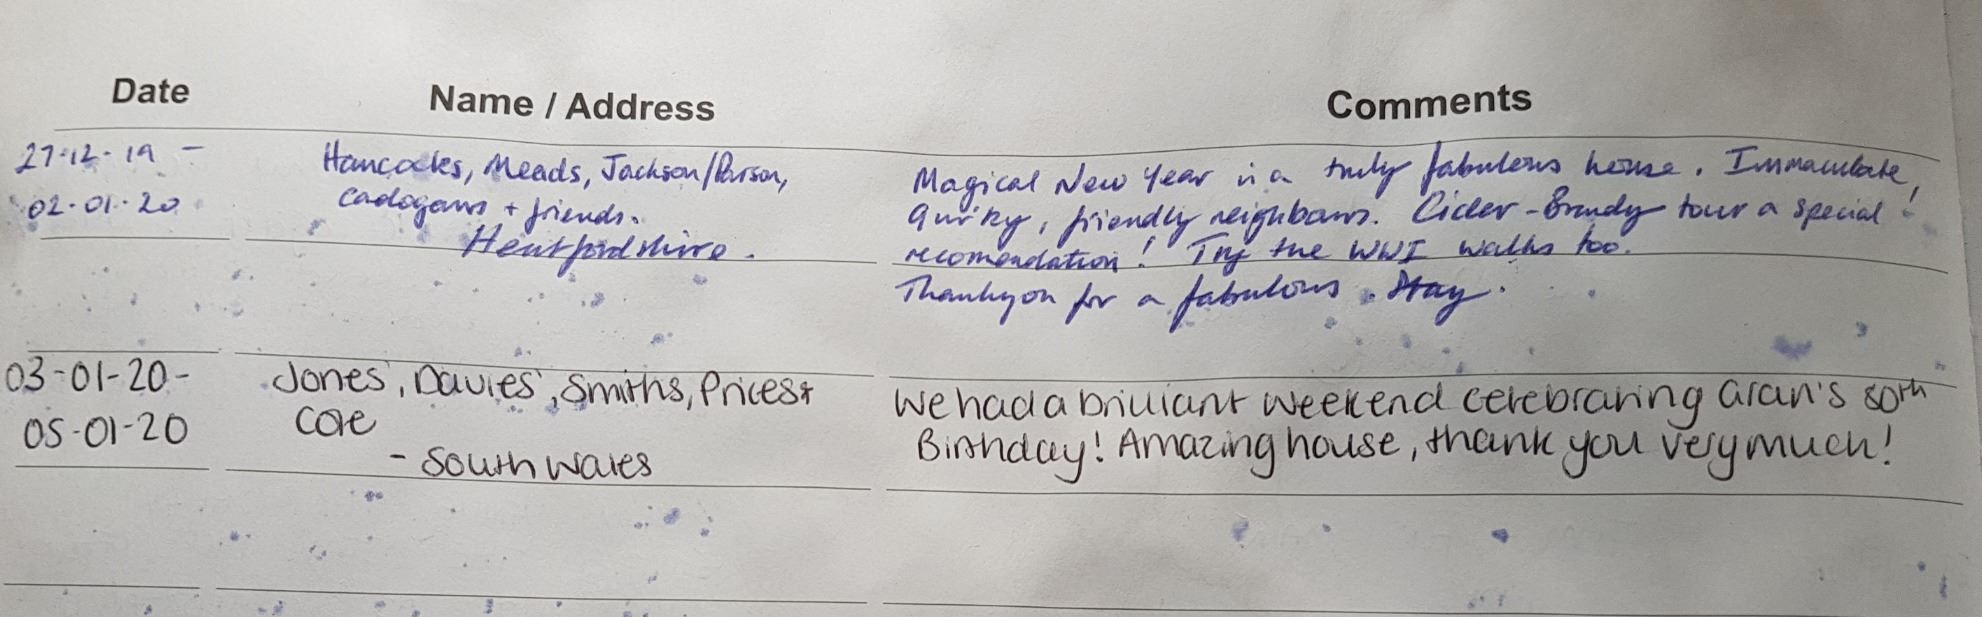 Date Name / Address Comments
27.12.19 - Hancocks, Meads, Jackson/Parson, Magical New Year in a truly fabulous house. Immaculate,
02.01.20 Cadogans + friends. quirky, friendly neighbours. Cider-Brandy tour a special!
Hertfordshire. recomendation! Try the WWI walks too.
Thankyou for a fabulous stay.
03-01-20- Jones', Davies', Smiths, Prices + We had a brilliant weekend celebrating Gran's 80th
05-01-20 Cole Birthday! Amazing house, thank you very much!
- South Wales